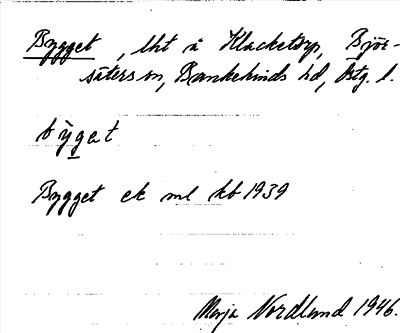 Bygget, lht å Klacketorp, Björ-
säters sn, Bankekinds hd, Östg. l.
bỳgat
Bygget ek ml kb 1939
Marja Nordlund 1946.